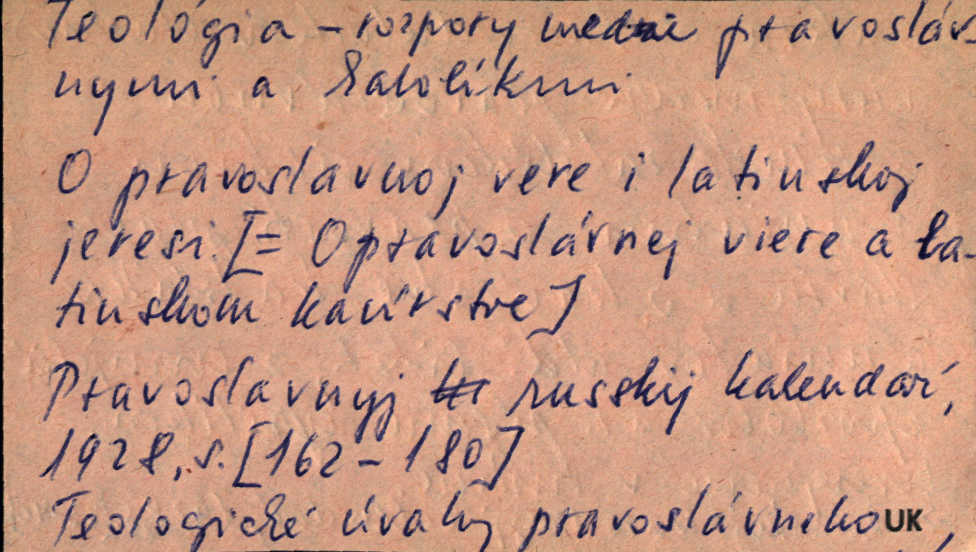 Teológia - rozpory medzi pravosláv-
nymi a katolíkmi
O pravoslavnoj vere i latinskoj
jeresi. [= O pravoslávnej viere a la-
tinskom kacírstve]
Pravoslavnyj russkij kalendař,
1928, s. [162-180]
Teologické úvahy pravoslávneho UK